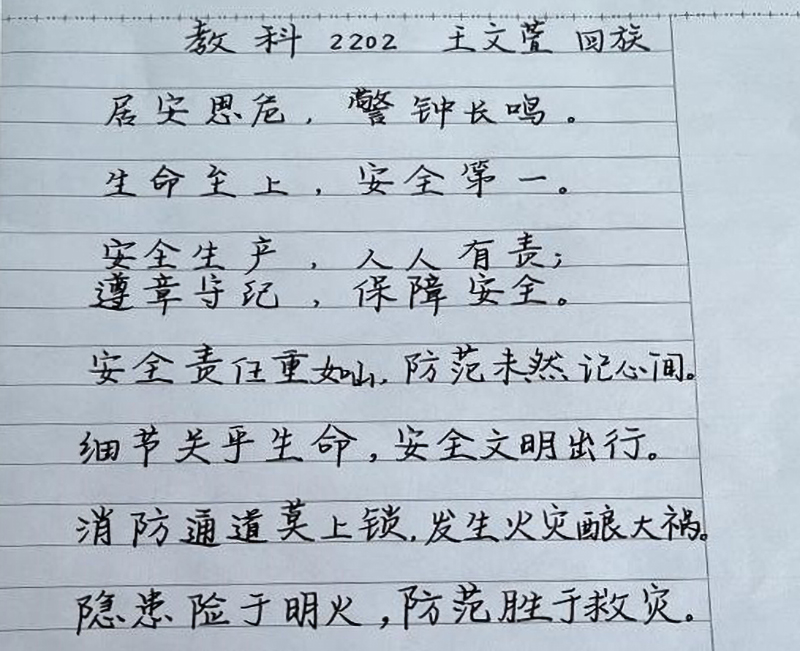 教科 2202 王文萱 回族
居安思危，警钟长鸣。
生命至上，安全第一。
安全生产，人人有责；
遵章守纪，保障安全。
安全责任重如山，防范未然记心间。
细节关乎生命，安全文明出行。
消防通道莫上锁，发生火灾酿大祸。
隐患险于明火，防范胜于救灾。